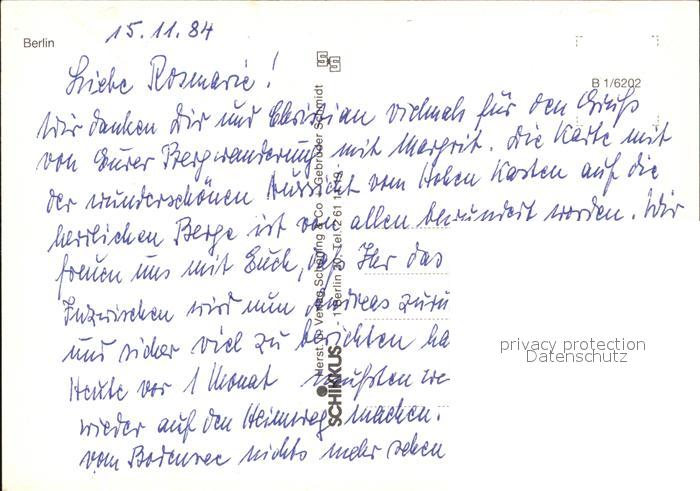 15.11.84
Berlin
B 1/6202
Liebe Rosmarie!
Wir danken Dir und Christian vielmals für den Gruß
von Eurer Bergwanderung mit Margrit. Die Karte mit
der wunderschönen Aussicht vom Hohen Kasten auf die
herrlichen Berge ist von allen bewundert worden. Wir
freuen uns mit Euch, daß Ihr das
Inzwischen wird nun Andreas zurü
und sicher viel zu berichten ha
Heute vor 1 Monat mußten wi
wieder auf den Heimweg machen.
vom Bodensee nichts mehr sehen
SCHIKKUS
Herst. u. Verlag Schöning & Co. + Gebrüder Schmidt
1 Berlin 30, Tel. 2 61 18
privacy protection
Datenschutz